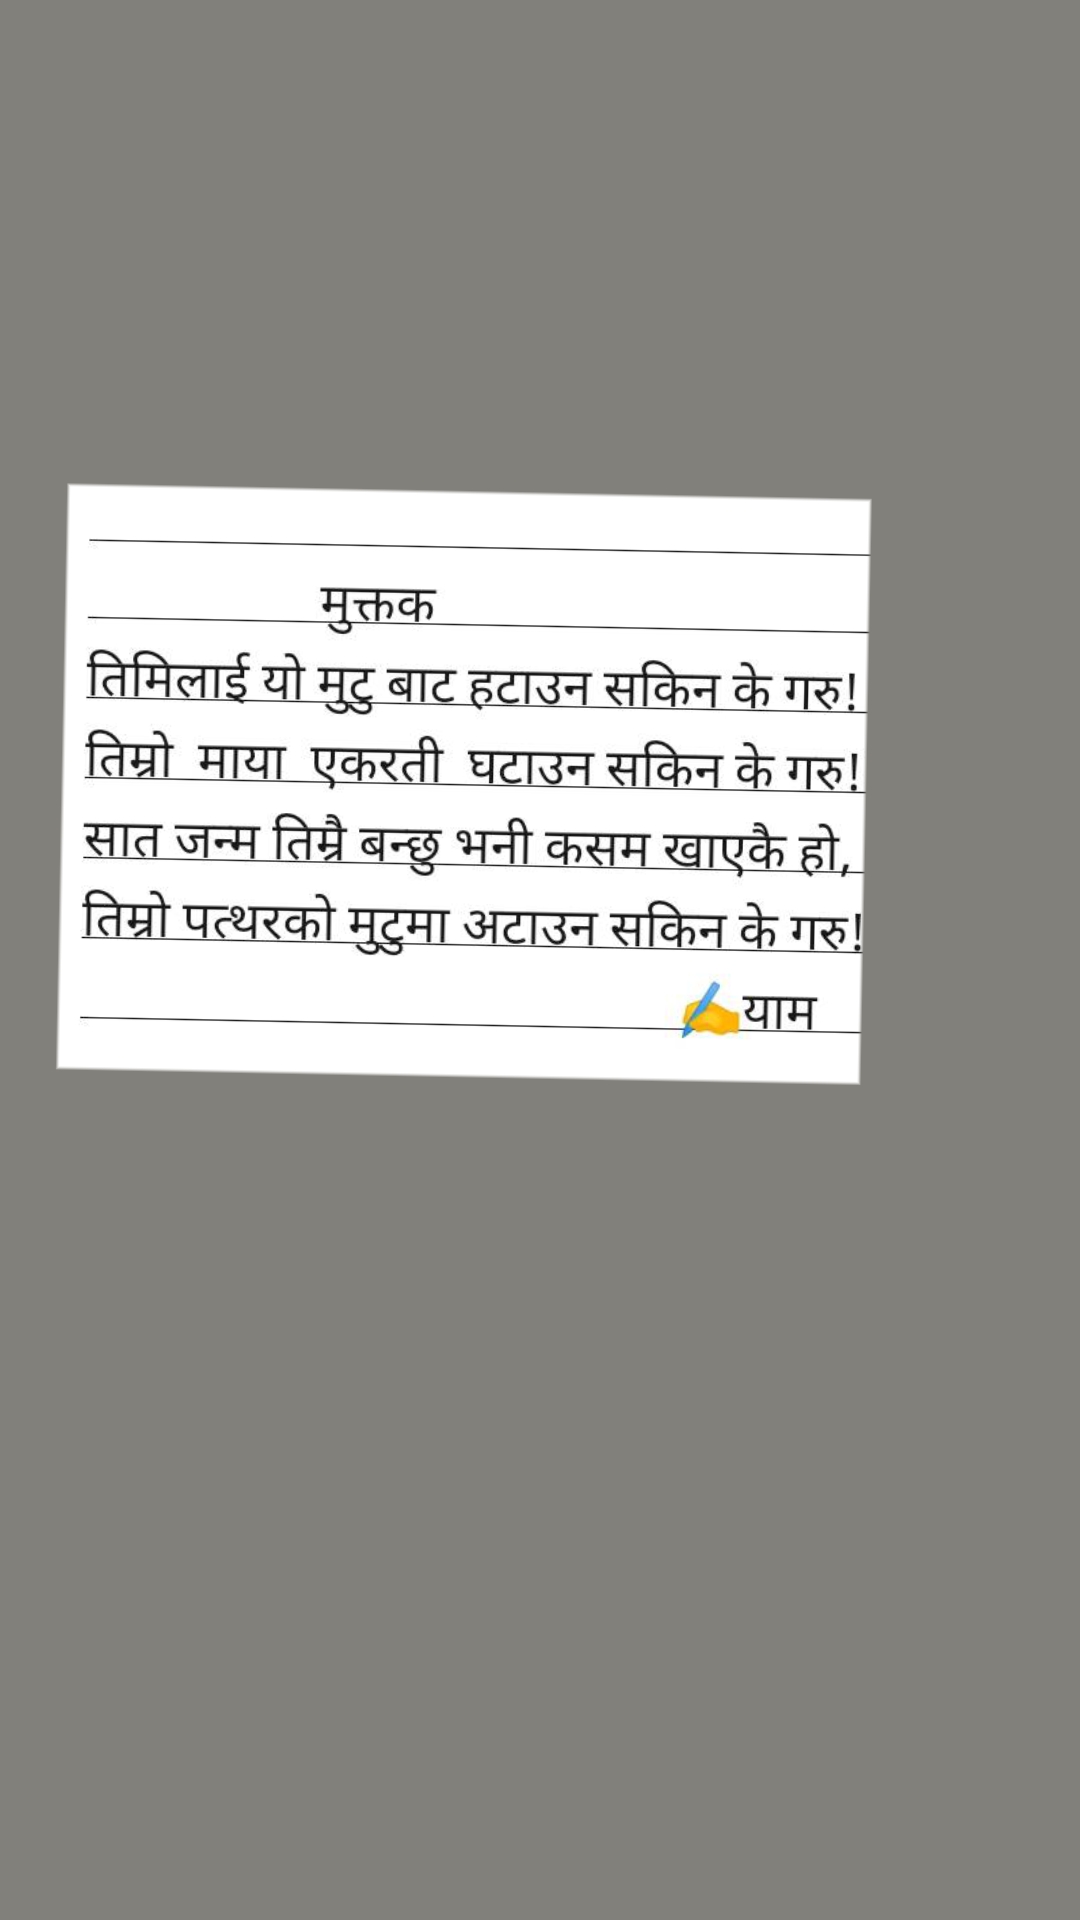 मुक्तक
तिमिलाई यो मुटु बाट हटाउन सकिन के गरु!
तिम्रो माया एकरती घटाउन सकिन के गरु!
सात जन्म तिम्रै बन्छु भनी कसम खाएकै हो,
तिम्रो पत्थरको मुटुमा अटाउन सकिन के गरु!
✍️याम